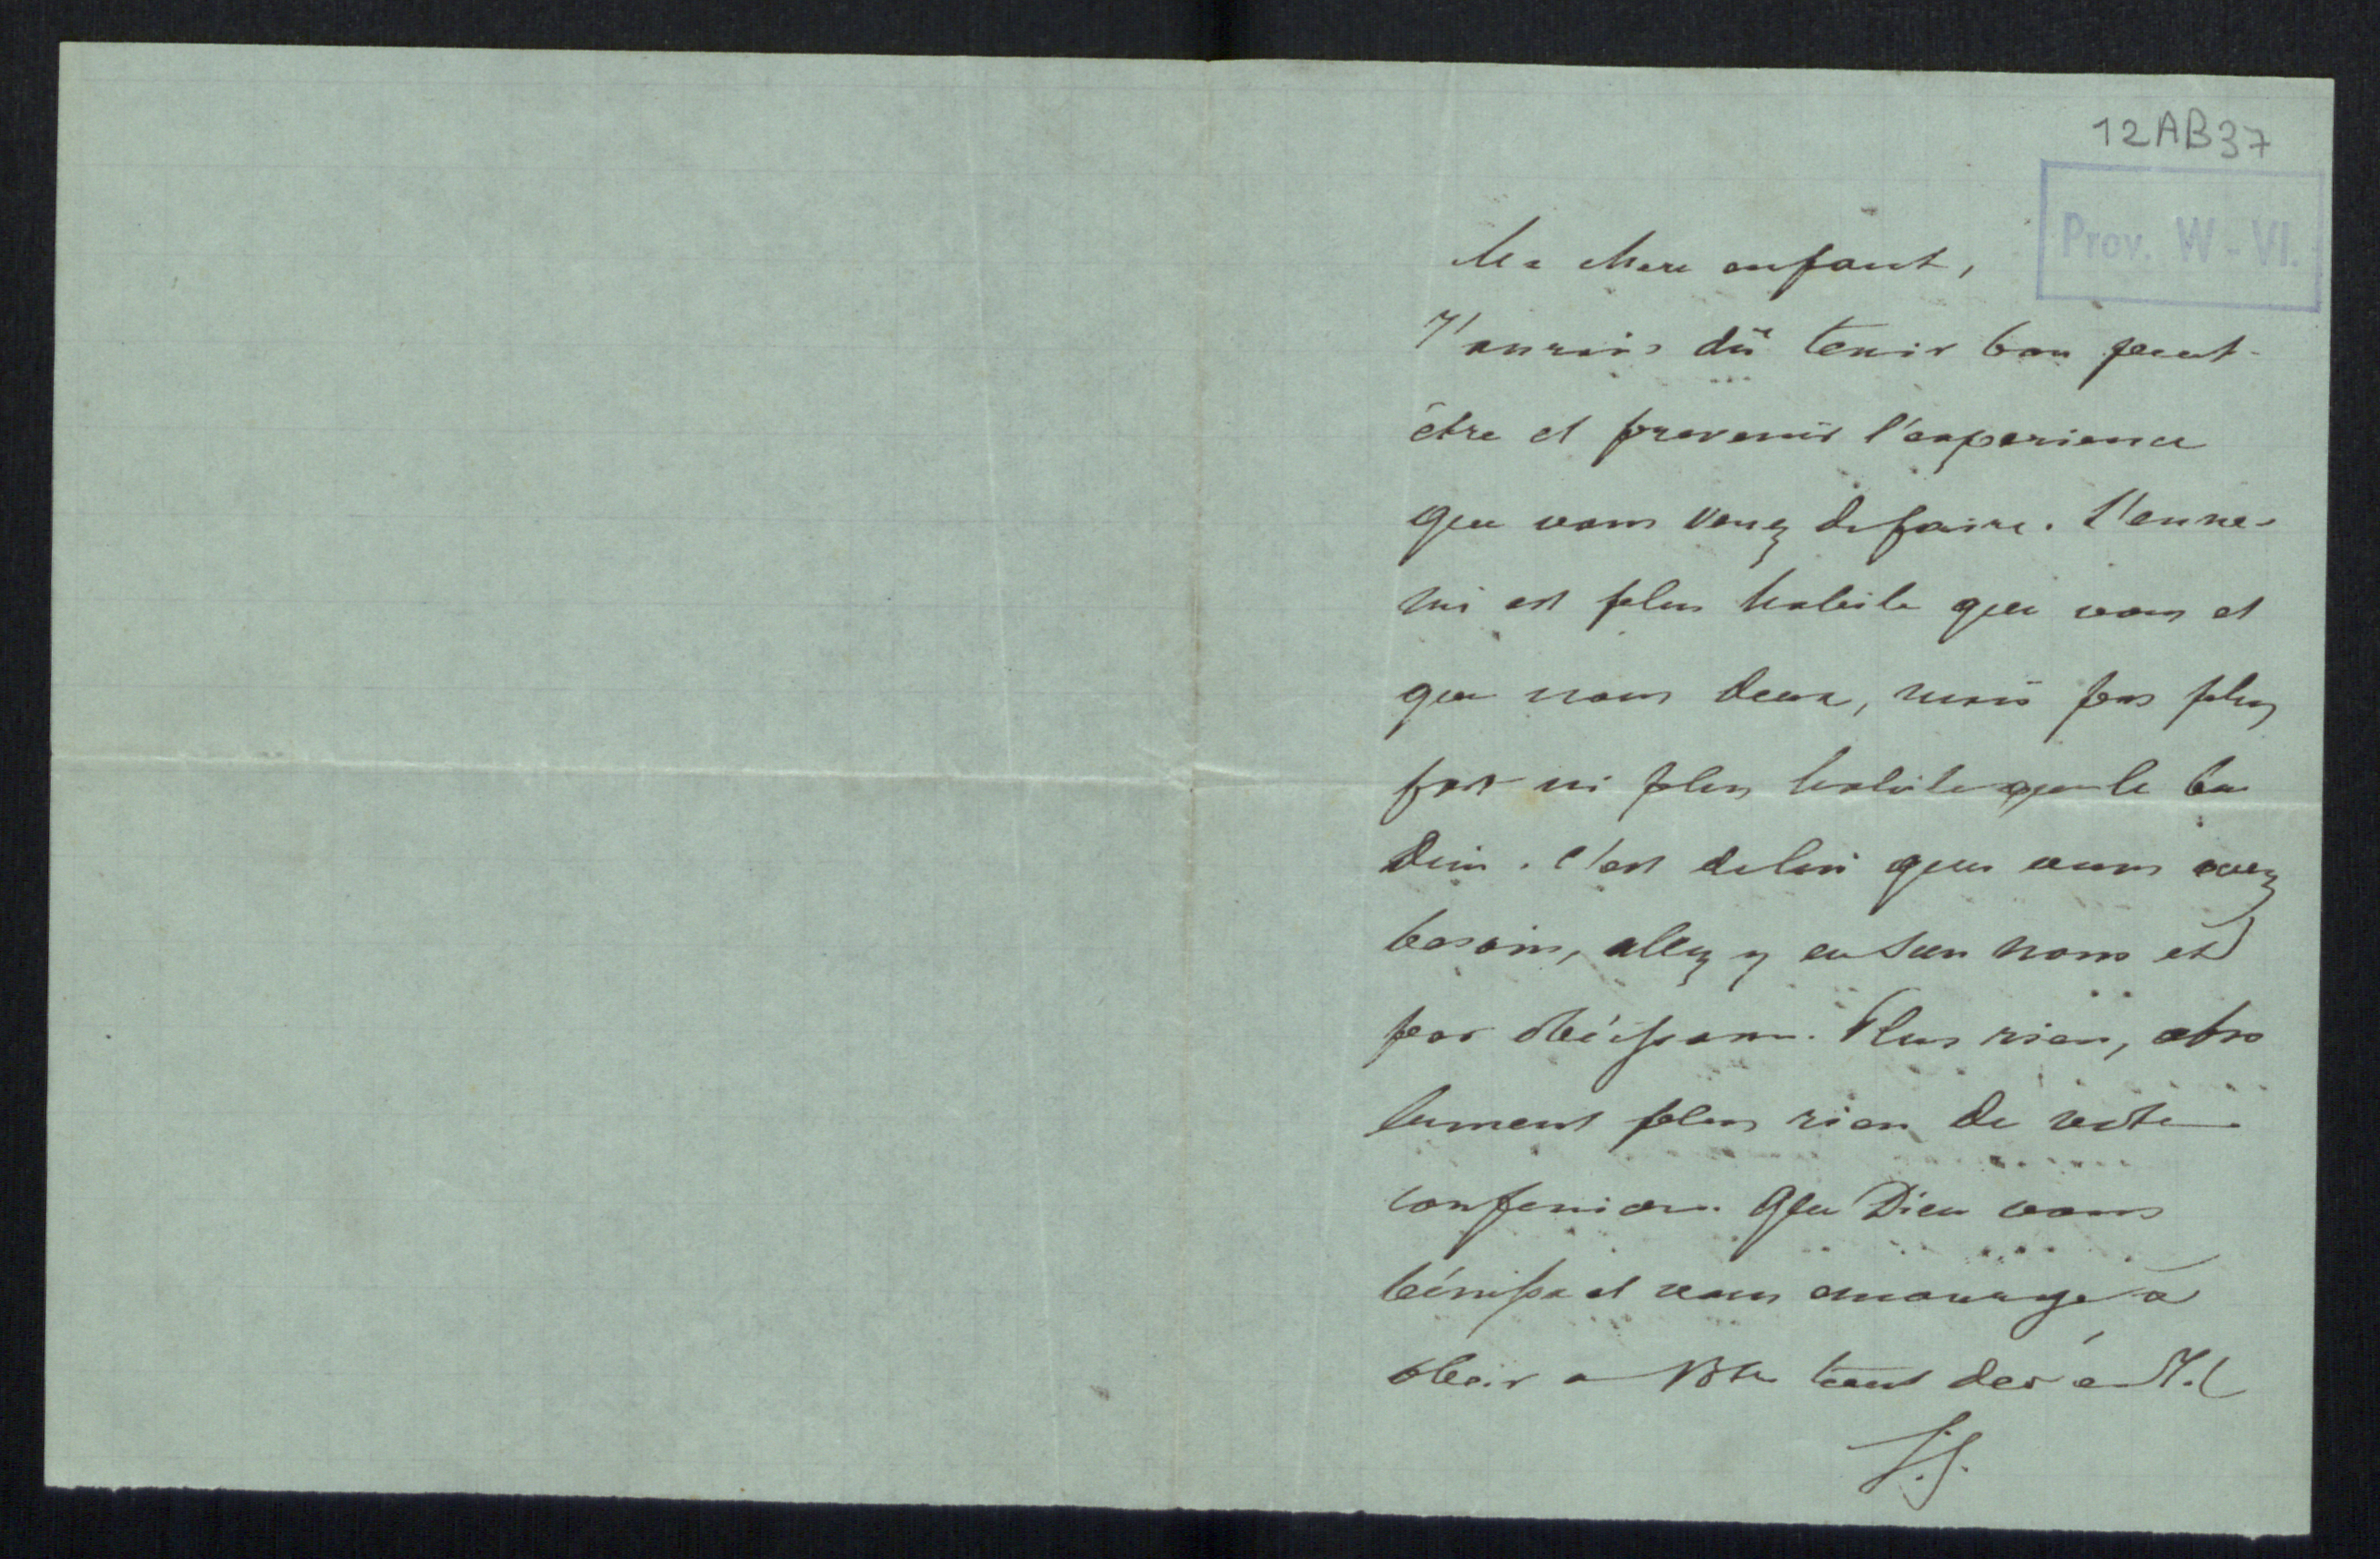 12AB37
Prov. W-VI.
Ma chere enfant,
J'aurais dû tenir bon peut-
être et prevenir l'experience
que vous venez de faire. L'enne-
mi est plus habile que vous et
que nous deux, mais pas plus
fort ni plus habile que le bon
Dieu. C'est de lui que vous avez
besoin, allez y en son nom et
par obéissance. Plus rien, abso
lument plus rien de votre
confession. Que Dieu vous
bénisse et vous encourage à
obeir a Votre tout dev é N.S.